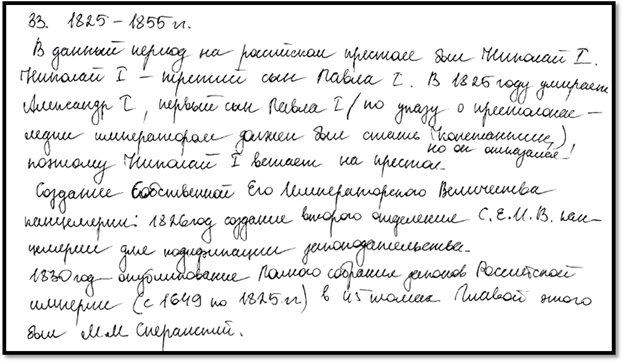 33. 1825 – 1855 гг.
В данный период на российском престоле был Николай I.
Николай I – третий сын Павла I. В 1825 году умирает
Александр I, первый сын Павла I / по указу о престолонас-
ледии императором должен был стать (Константин,)
но он отказался!
поэтому Николай I встает на престол.
Создание Собственной Его Императорского Величества
канцелярии: 1826 год создание второго отделения С.Е.И.В. кан-
целярии для кодификации законодательства.
1830 год – опубликование Полного собрания законов Российской
империи (с 1649 по 1825 гг.) в 45 томах. Главой этого
был М.М Сперанский.